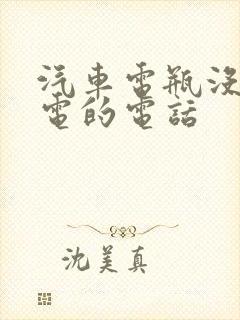 汽車電瓶沒
電的電話
沈美真